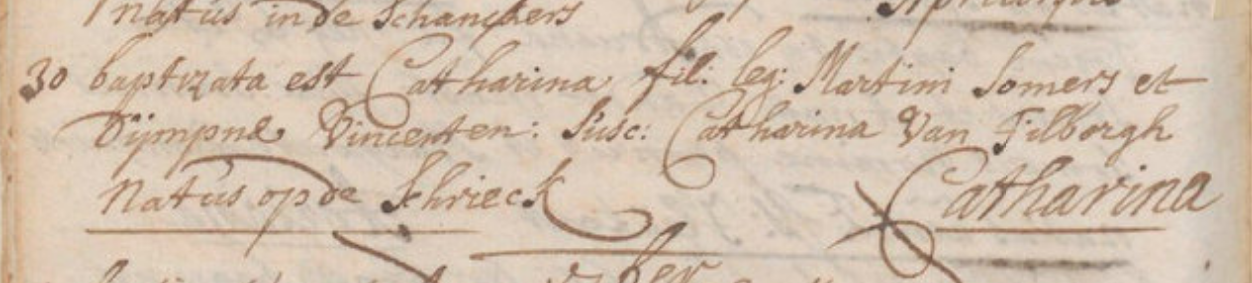 natus in de Schanckers
30 baptizata est Catharina fil: leg: Martini Somers et
Dijmpnæ Vincenten: Susc: Catharina Van Tilborgh
Natus op de Schrieck Catharina